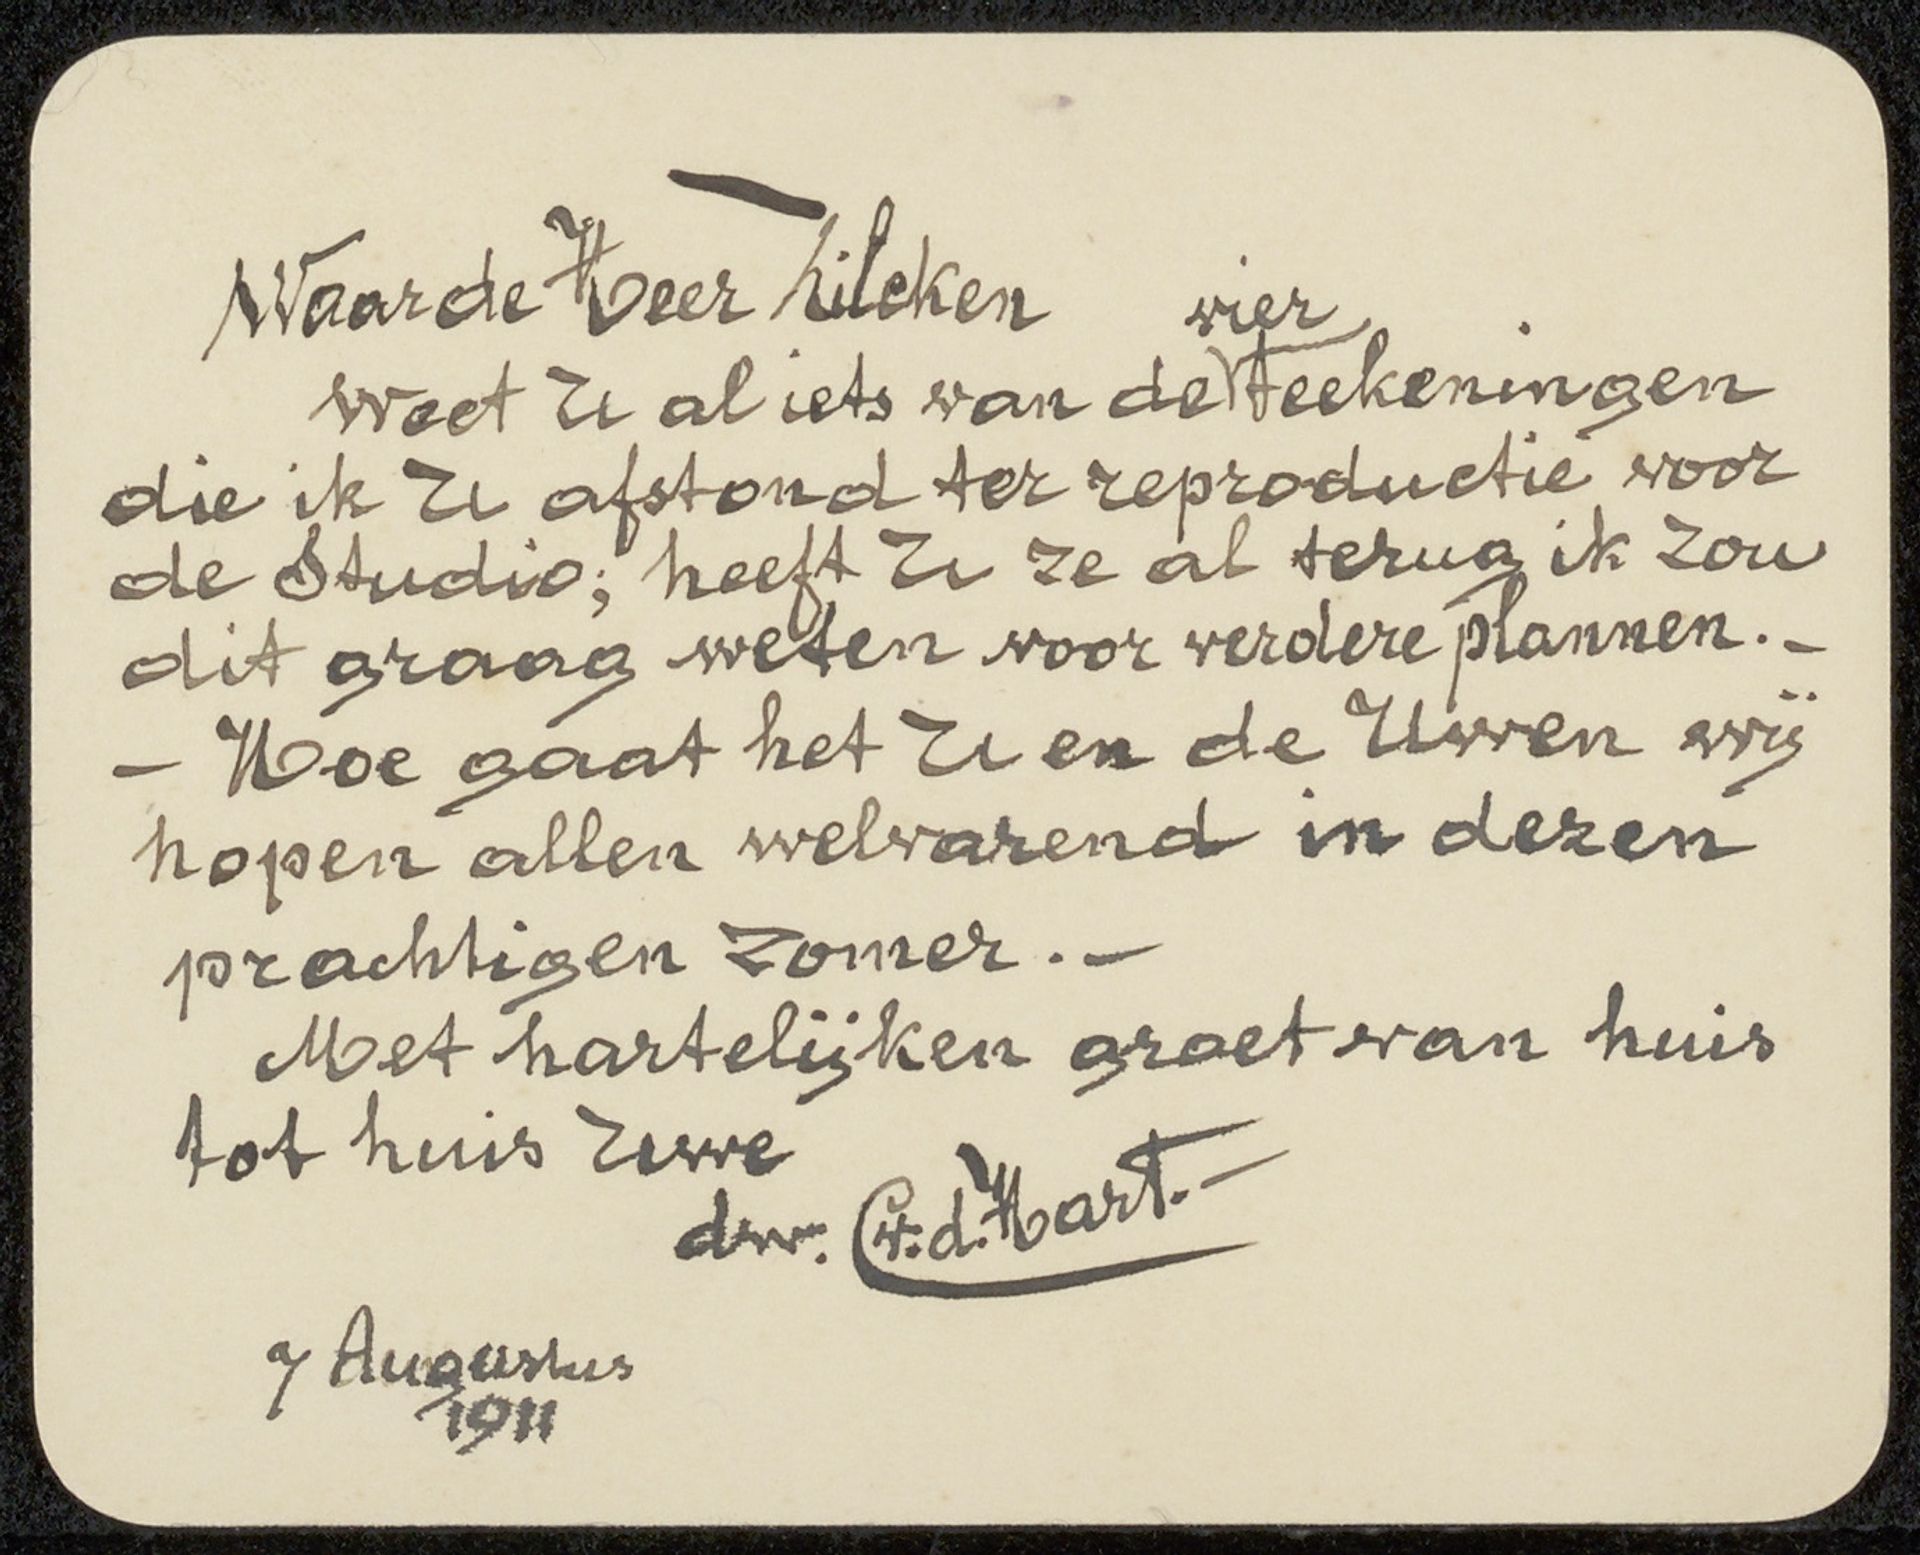 Waarde Heer Zilcken
vier
weet U al iets van de teekeningen
die ik U afstond ter reproductie voor
de Studio; heeft U ze al terug ik zou
dit graag weten voor verdere plannen. -
- Hoe gaat het U en de Uwen wij
hopen allen welvarend in dezen
prachtigen zomer. -
Met hartelijken groet van huis
tot huis Uwe
dw. C.v.d.Hart. -
7 Augustus
1911